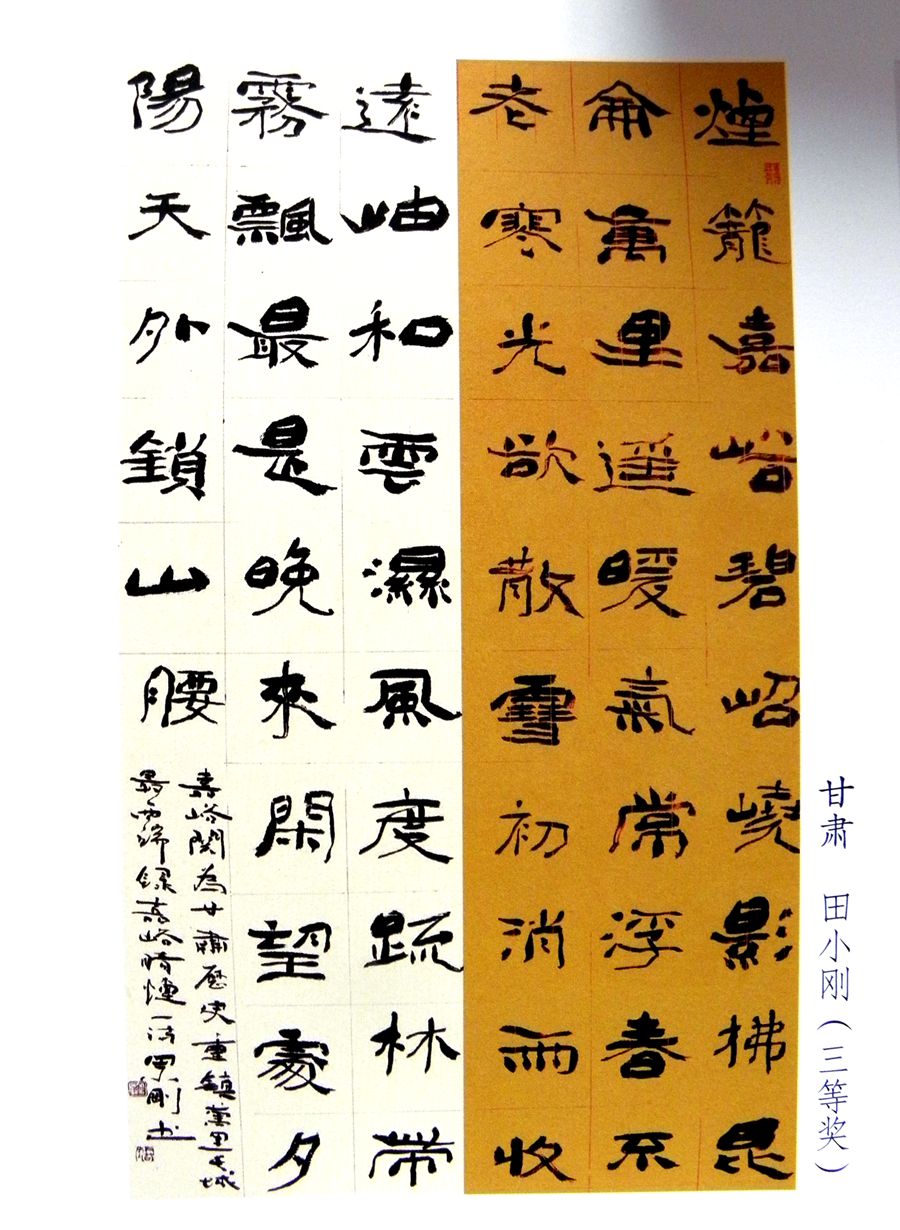 煙籠嘉峪碧岧嶢影拂昆
侖萬里遥暖氣常浮春不
老寒光欲散雪初消雨收
遠岫和雲濕風度疏林帶
霧飄最是晚來閑望處夕
陽天外鎖山腰
嘉峪関為甘肅歷史重鎮萬里长城
最西端録嘉峪晴煙一诗剛书
甘肃 田小刚（三等奖）